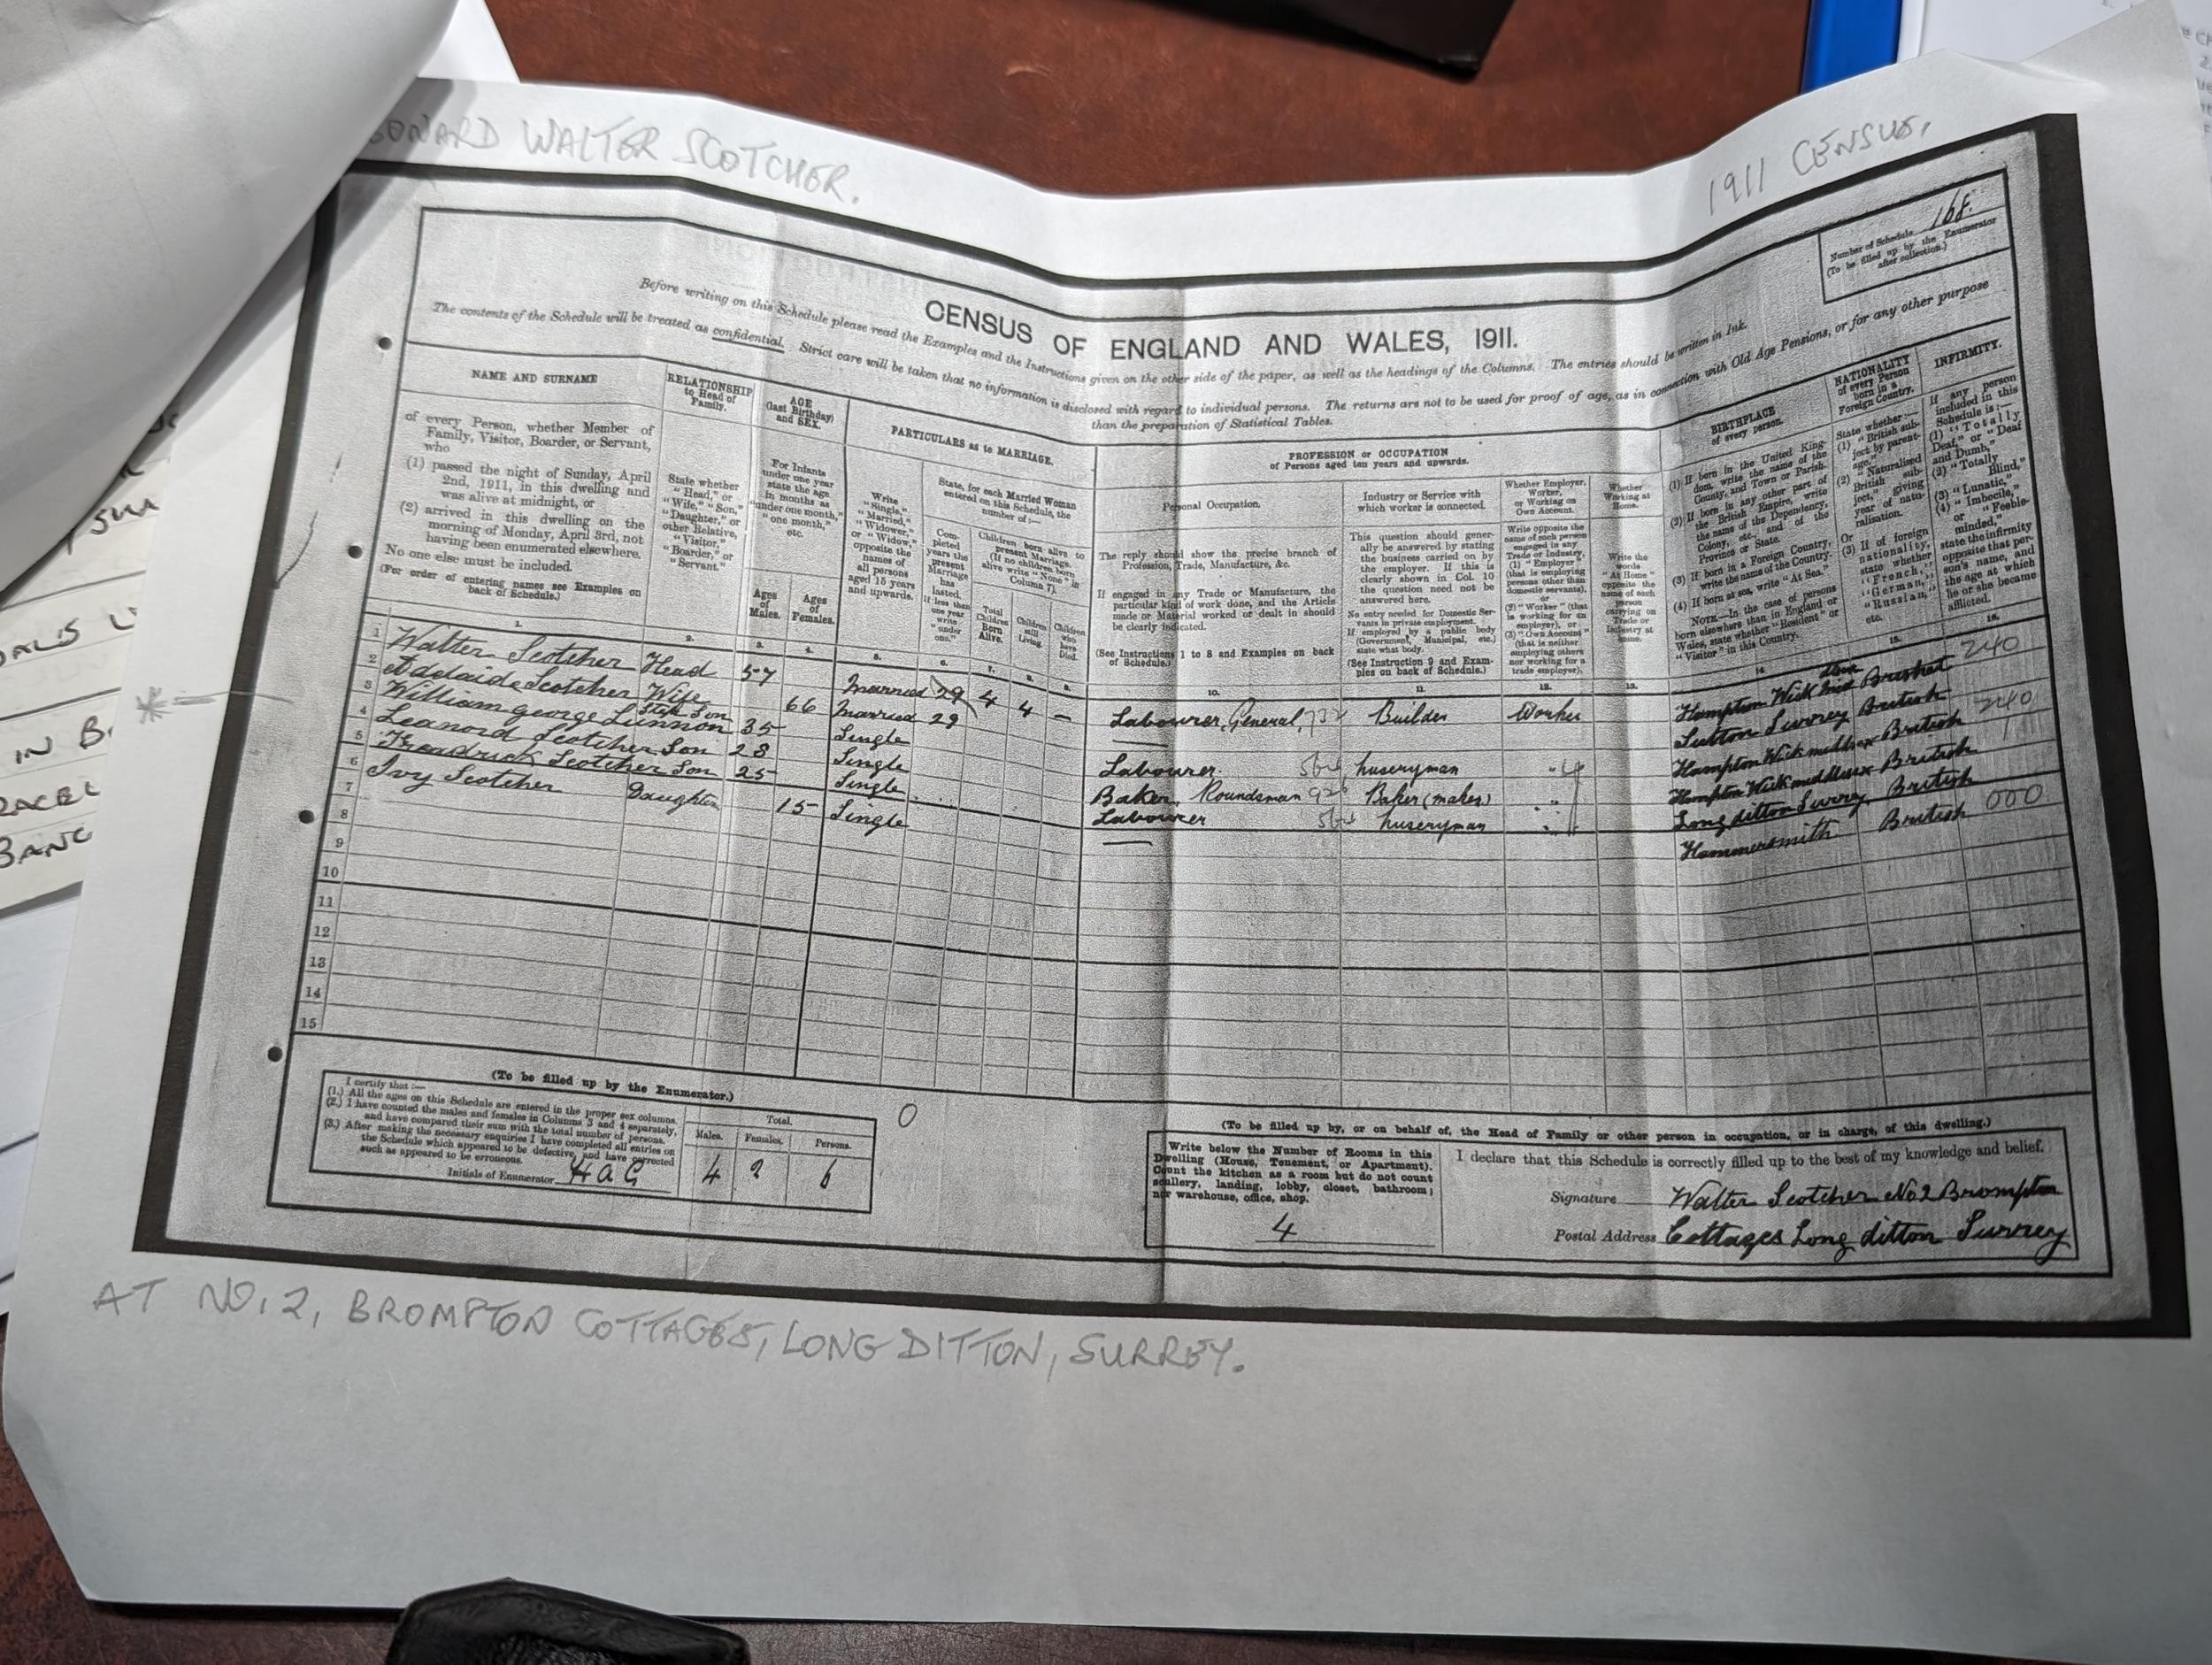 EONARD WALTER SCOTCHER.
1911 CENSUS.
Number of Schedule 168.
(To be filled up by the Enumerator
after collection.)
CENSUS OF ENGLAND AND WALES, 1911.
Before writing on this Schedule please read the Examples and the Instructions given on the other side of the paper, as well as the headings of the Columns. The entries should be written in Ink.
The contents of the Schedule will be treated as confidential. Strict care will be taken that no information is disclosed with regard to individual persons. The returns are not to be used for proof of age, as in connection with Old Age Pensions, or for any other purpose
than the preparation of Statistical Tables.
NAME AND SURNAME
of every Person, whether Member of
Family, Visitor, Boarder, or Servant,
who
(1) passed the night of Sunday, April
2nd, 1911, in this dwelling and
was alive at midnight, or
(2) arrived in this dwelling on the
morning of Monday, April 3rd, not
having been enumerated elsewhere.
No one else must be included.
(For order of entering names see Examples on
back of Schedule.)
RELATIONSHIP
to Head of
Family.
State whether
"Head," or
"Wife," "Son,"
"Daughter," or
other Relative,
"Visitor,"
"Boarder," or
"Servant."
AGE
(last Birthday)
and SEX.
For Infants
under one year
state the age
in months as
"under one month,"
"one month,"
etc.
Ages
of
Males.
Ages
of
Females.
PARTICULARS as to MARRIAGE.
Write
"Single,"
"Married,"
"Widower,"
or "Widow,"
opposite the
names of
all persons
aged 15 years
and upwards.
State, for each Married Woman
entered on this Schedule, the
number of:—
Completed
years the
present
Marriage
has
lasted.
If less than
one year
write
"under
one."
Children born alive to
present Marriage.
(If no children born
alive write "None" in
Column 7).
Total
Children
Born
Alive.
Children
still
Living.
Children
who
have
Died.
PROFESSION or OCCUPATION
of Persons aged ten years and upwards.
Personal Occupation.
The reply should show the precise branch of
Profession, Trade, Manufacture, &c.
If engaged in any Trade or Manufacture, the
particular kind of work done, and the Article
made or Material worked or dealt in should
be clearly indicated.
(See Instructions 1 to 8 and Examples on back
of Schedule.)
Industry or Service with
which worker is connected.
This question should gener-
ally be answered by stating
the business carried on by
the employer. If this is
clearly shown in Col. 10
the question need not be
answered here.
No entry needed for Domestic Ser-
vants in private employment.
If employed by a public body
(Government, Municipal, etc.)
state what body.
(See Instruction 9 and Exam-
ples on back of Schedule.)
Whether Employer,
Worker,
or Working on
Own Account.
Write opposite the
name of each person
engaged in any
Trade or Industry,
(1) "Employer"
(that is employing
persons other than
domestic servants),
or
(2) "Worker" (that
is working for an
employer), or
(3) "Own Account"
(that is neither
employing others
nor working for a
trade employer).
Whether
Working at
Home.
Write the
words
"At Home"
opposite the
name of each
person
carrying on
Trade or
Industry at
home.
BIRTHPLACE
of every person.
(1) If born in the United King-
dom, write the name of the
County, and Town or Parish.
(2) If born in any other part of
the British Empire, write
the name of the Dependency,
Colony, etc., and of the
Province or State.
(3) If born in a Foreign Country,
write the name of the Country.
(4) If born at sea, write "At Sea."
NOTE.—In the case of persons
born elsewhere than in England or
Wales, state whether "Resident" or
"Visitor" in this Country.
NATIONALITY
of every Person
born in a
Foreign Country.
State whether:—
(1) "British sub-
ject by parent-
age,"
(2) "Naturalised
British sub-
ject," giving
year of natu-
ralisation.
Or
(3) If of foreign
nationality,
state whether
"French,"
"German,"
"Russian,"
etc.
INFIRMITY.
If any person
included in this
Schedule is:—
(1) "Totally
Deaf," or "Deaf
and Dumb,"
(2) "Totally
Blind,"
(3) "Lunatic,"
(4) "Imbecile,"
or "Feeble-
minded,"
state the infirmity
opposite that per-
son's name, and
the age at which
he or she became
afflicted.
1. 2. 3. 4. 5. 6. 7. 8. 9. 10. 11. 12. 13. 14. 15. 16.
1 Walter Scotcher Head 57 Married 29 4 4 — Labourer, General, Builder Worker Hampton Wick 240
2 Adelaide Scotcher Wife 66 Married 29 Sutton Surrey British
3 William george Lunnon Step Son 35 Single Labourer. nuseryman Hampton Wick middlesex British 240
4 Leanord Scotcher Son 28 Single Baker, Roundsman Baker (maker) Hampton Wick middlesex British
5 Freadrick Scotcher Son 25 Single Labourer nuseryman Long ditton Surrey British
6 Ivy Scotcher Daughter 15 Single Hammersmith British 000
7
8
9
10
11
12
13
14
15
(To be filled up by the Enumerator.)
I certify that:—
(1.) All the ages on this Schedule are entered in the proper sex columns.
(2.) I have counted the males and females in Columns 3 and 4 separately,
and have compared their sum with the total number of persons.
(3.) After making the necessary enquiries I have completed all entries on
the Schedule which appeared to be defective, and have corrected
such as appeared to be erroneous.
Initials of Enumerator
Total.
Males. Females. Persons.
4 2 6
0
(To be filled up by, or on behalf of, the Head of Family or other person in occupation, or in charge, of this dwelling.)
Write below the Number of Rooms in this
Dwelling (House, Tenement, or Apartment).
Count the kitchen as a room but do not count
scullery, landing, lobby, closet, bathroom;
nor warehouse, office, shop.
4
I declare that this Schedule is correctly filled up to the best of my knowledge and belief.
Signature Walter Scotcher No2 Brompton
Postal Address Cottages Long ditton Surrey
AT NO. 2, BROMPTON COTTAGES, LONG DITTON, SURREY.